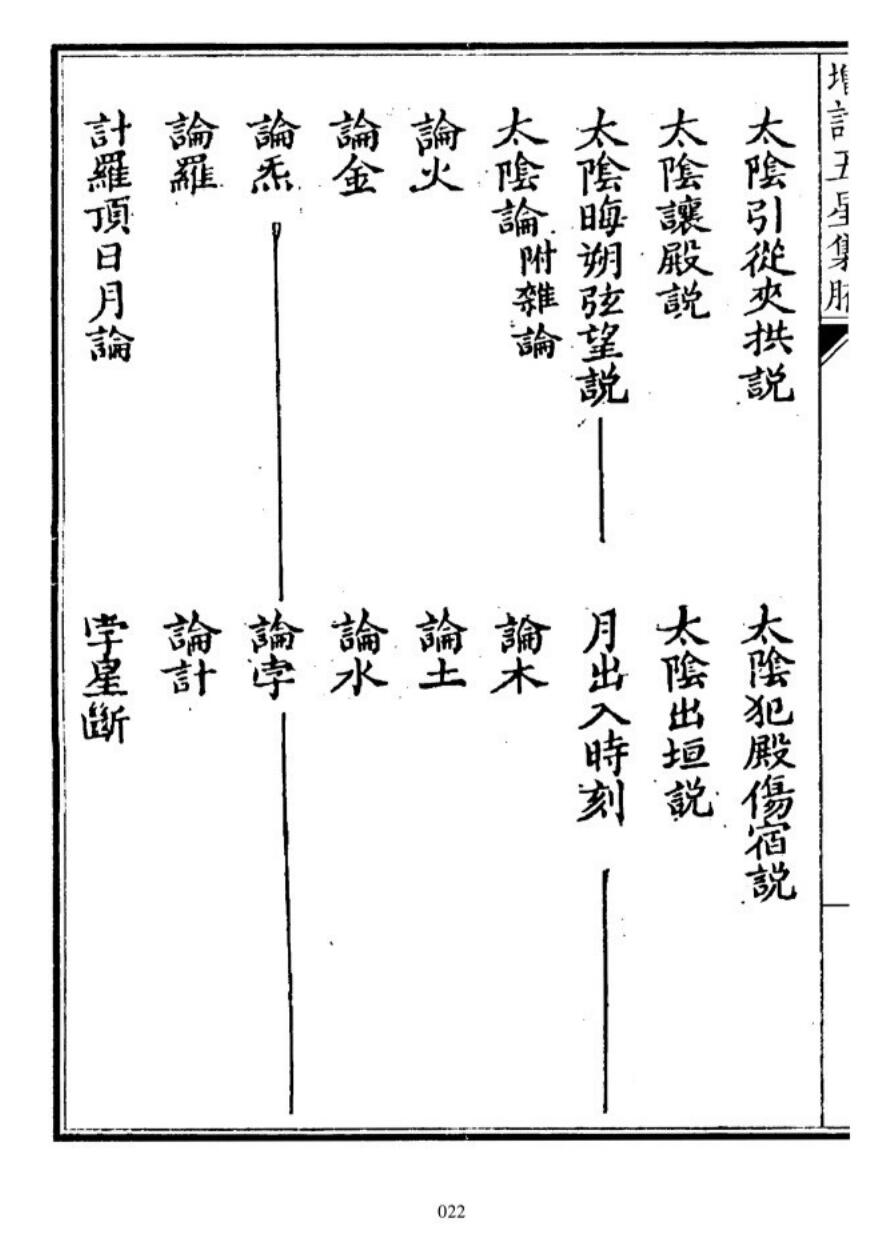 增訂五星集腋
太陰引從夾拱説
太陰犯殿傷宿説
太陰讓殿説
太陰出垣説
太陰晦朔弦望説
月出入時刻
太陰論附雜論
論木
論火
論土
論金
論水
論炁
論孛
論羅
論計
計羅頂日月論
孛星斷
022